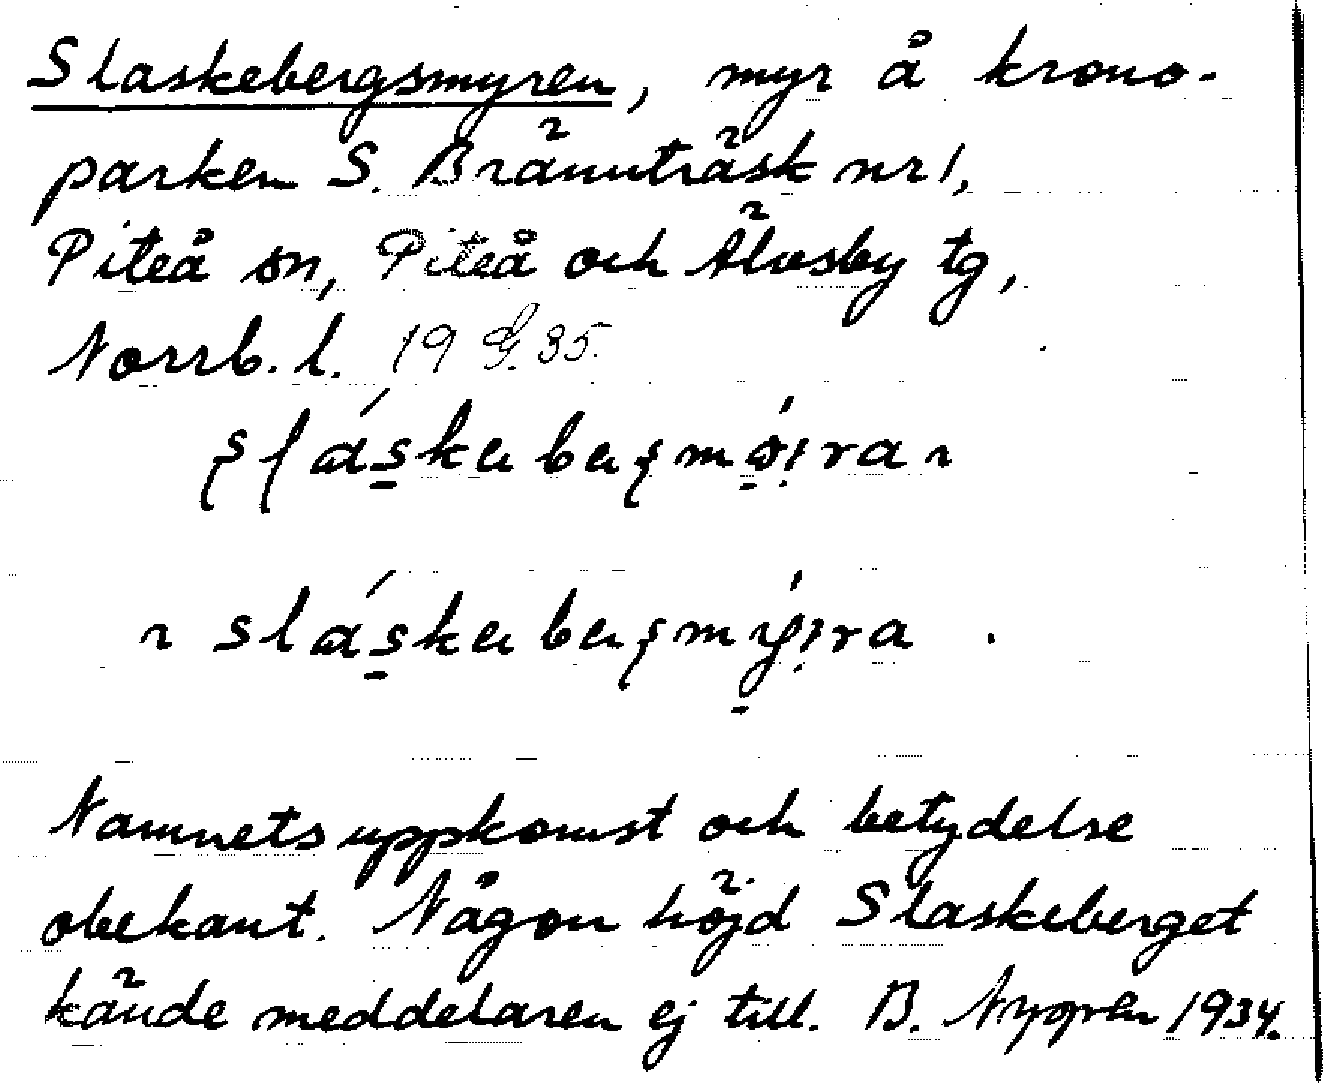 Slaskebergsmyren, myr å krono-
parken S. Brännträsk nr 1,
Piteå sn, Piteå och Älvsby tg,
Norrb. l. 19 35.
Namnets uppkomst och betydelse
obekant. Någon höjd Slaskeberget
kände meddelaren ej till. B. Nygren 1934.